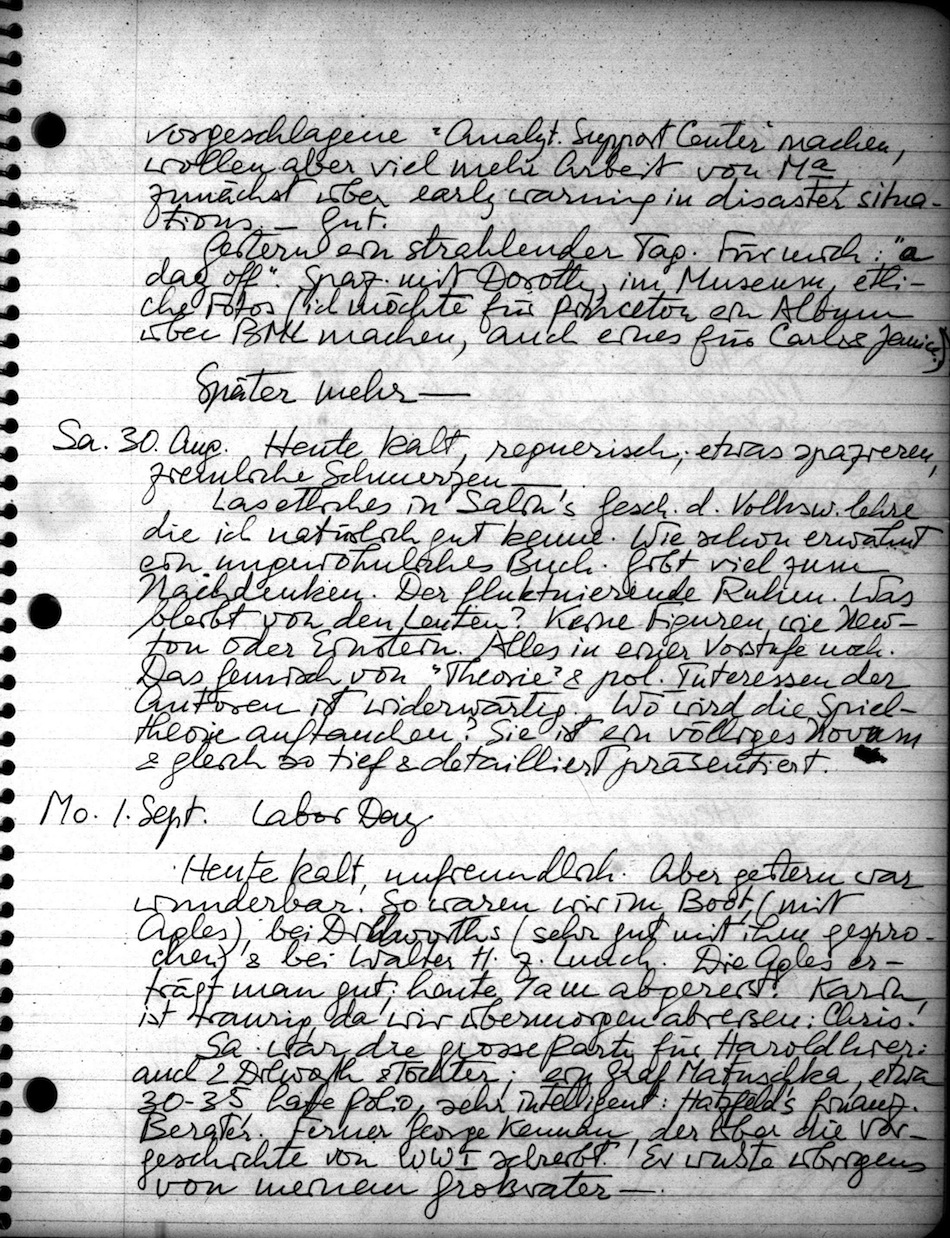 vorgeschlagene "Analyt. Support Center" machen,
wollen aber viel mehr Arbeit von Ma
zunächst über early warning in disaster situa-
tions — Gut.
Gestern ein strahlender Tag. Für mich: "a
day off". Spaz. mit Dorothy, im Museum, etli-
che Fotos (ich möchte für Princeton ein Album
über BMK machen, auch eines für Carl & Janice.)
Später mehr —
Sa. 30. Aug. Heute kalt, regnerisch, etwas spazieren,
ziemliche Schmerzen —
Las etliches in Salin's Gesch. d. Volksw. lehre
die ich natürlich gut kenne. Wie schon erwähnt
ein ungewöhnliches Buch. Gibt viel zum
Nachdenken. Der fluktuierende Ruhm. Was
bleibt von den Leuten? Keine Figuren wie New-
ton oder Einstein. Alles in einer Vorstufe noch.
Das Gemisch von "Theorie" & pol. Interessen der
Autoren ist widerwärtig. Wo wird die Spiel-
theorie auftauchen? Sie ist ein völliges Novum
& gleich so tief & detailliert präsentiert.
Mo. 1. Sept. Labor Day
Heute kalt, unfreundlich. Aber gestern war
wunderbar. So waren wir im Boot, (mit
Agles), bei Dilworths (sehr gut mit ihm gespro-
chen) & bei Walter H. z. Lunch. Die Agles er-
trägt man gut; heute 7am abgereist. Karin
ist traurig, da wir übermorgen abreisen; Chris!
Sa. war die grosse Party für Harold hier:
auch 2 Dilworth Töchter; ein Graf Matuschka, etwa
30-35, hatte Polio, sehr intelligent: Hatzfeld's Finanz.
Berater. Ferner George Kennan, der über die Vor-
geschichte von WWI schreibt. Er wusste übrigens
von meinem Großvater —.